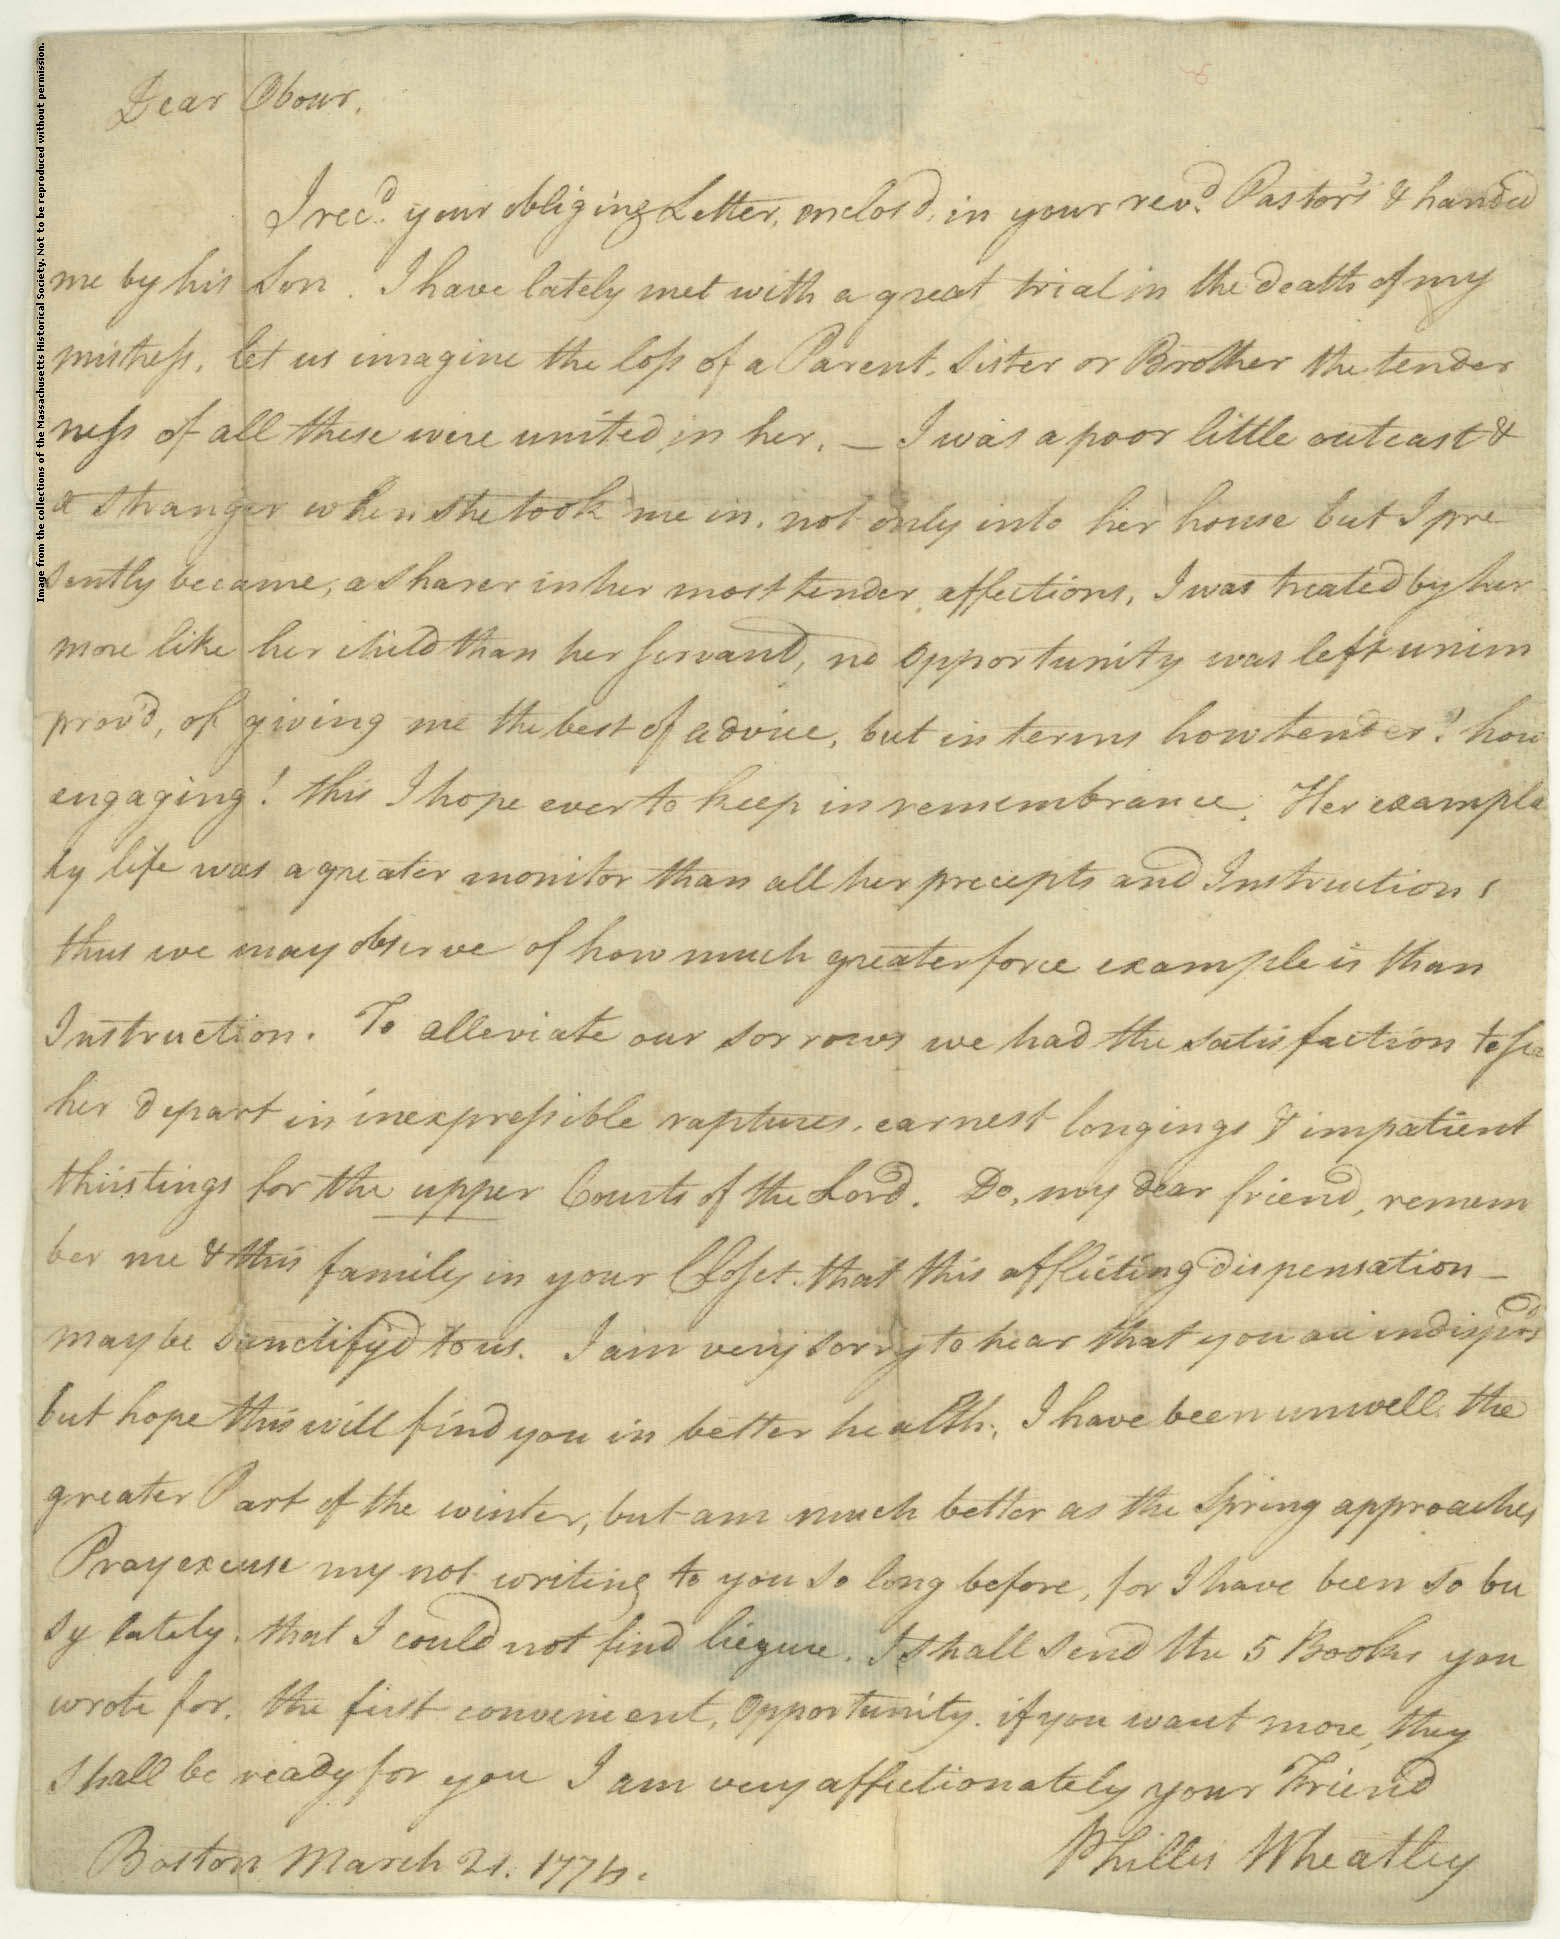 Image from the collections of the Massachusetts Historical Society. Not to be reproduced without permission.
Dear Obour,
I rec.d your obliging Letter, enclos'd, in your rev.d Pastor's & handed
me by his Son. I have lately met with a great trial in the death of my
mistress, let us imagine the loss of a Parent, Sister or Brother the tender
ness of all these were united, in her. — I was a poor little outcast &
a stranger when she took me in, not only into her house but I pre
sently became, a sharer in her most tender affections, I was treated by her
more like her child than her servant, no opportunity was left unim
prov'd, of giving me the best of advice, but in terms how tender! how
engaging! this I hope ever to keep in remembrance. Her exampla
ry life was a greater monitor than all her precepts and Instructions
thus we may observe of how much greater force example is than
Instruction. To alleviate our sorrows we had the satisfaction to see
her depart in inexpressible raptures, earnest longings & impatient
thirstings for the upper Courts of the Lord. Do, my dear friend, remem
ber me & this family in your Closet, that this afflicting dispensation —
may be sanctify'd to us. I am very sorry to hear that you are indispos'd
but hope this will find you in better health; I have been unwell the
greater Part of the winter, but am much better as the Spring approaches
Pray excuse my not writing to you so long before, for I have been so bu
sy lately, that I could not find liezure. I shall send the 5 Books you
wrote for, the first convenient, Opportunity. if you want more, they
Shall be ready for you I am very affectionately your Friend
Phillis Wheatley
Boston March 21. 1774.